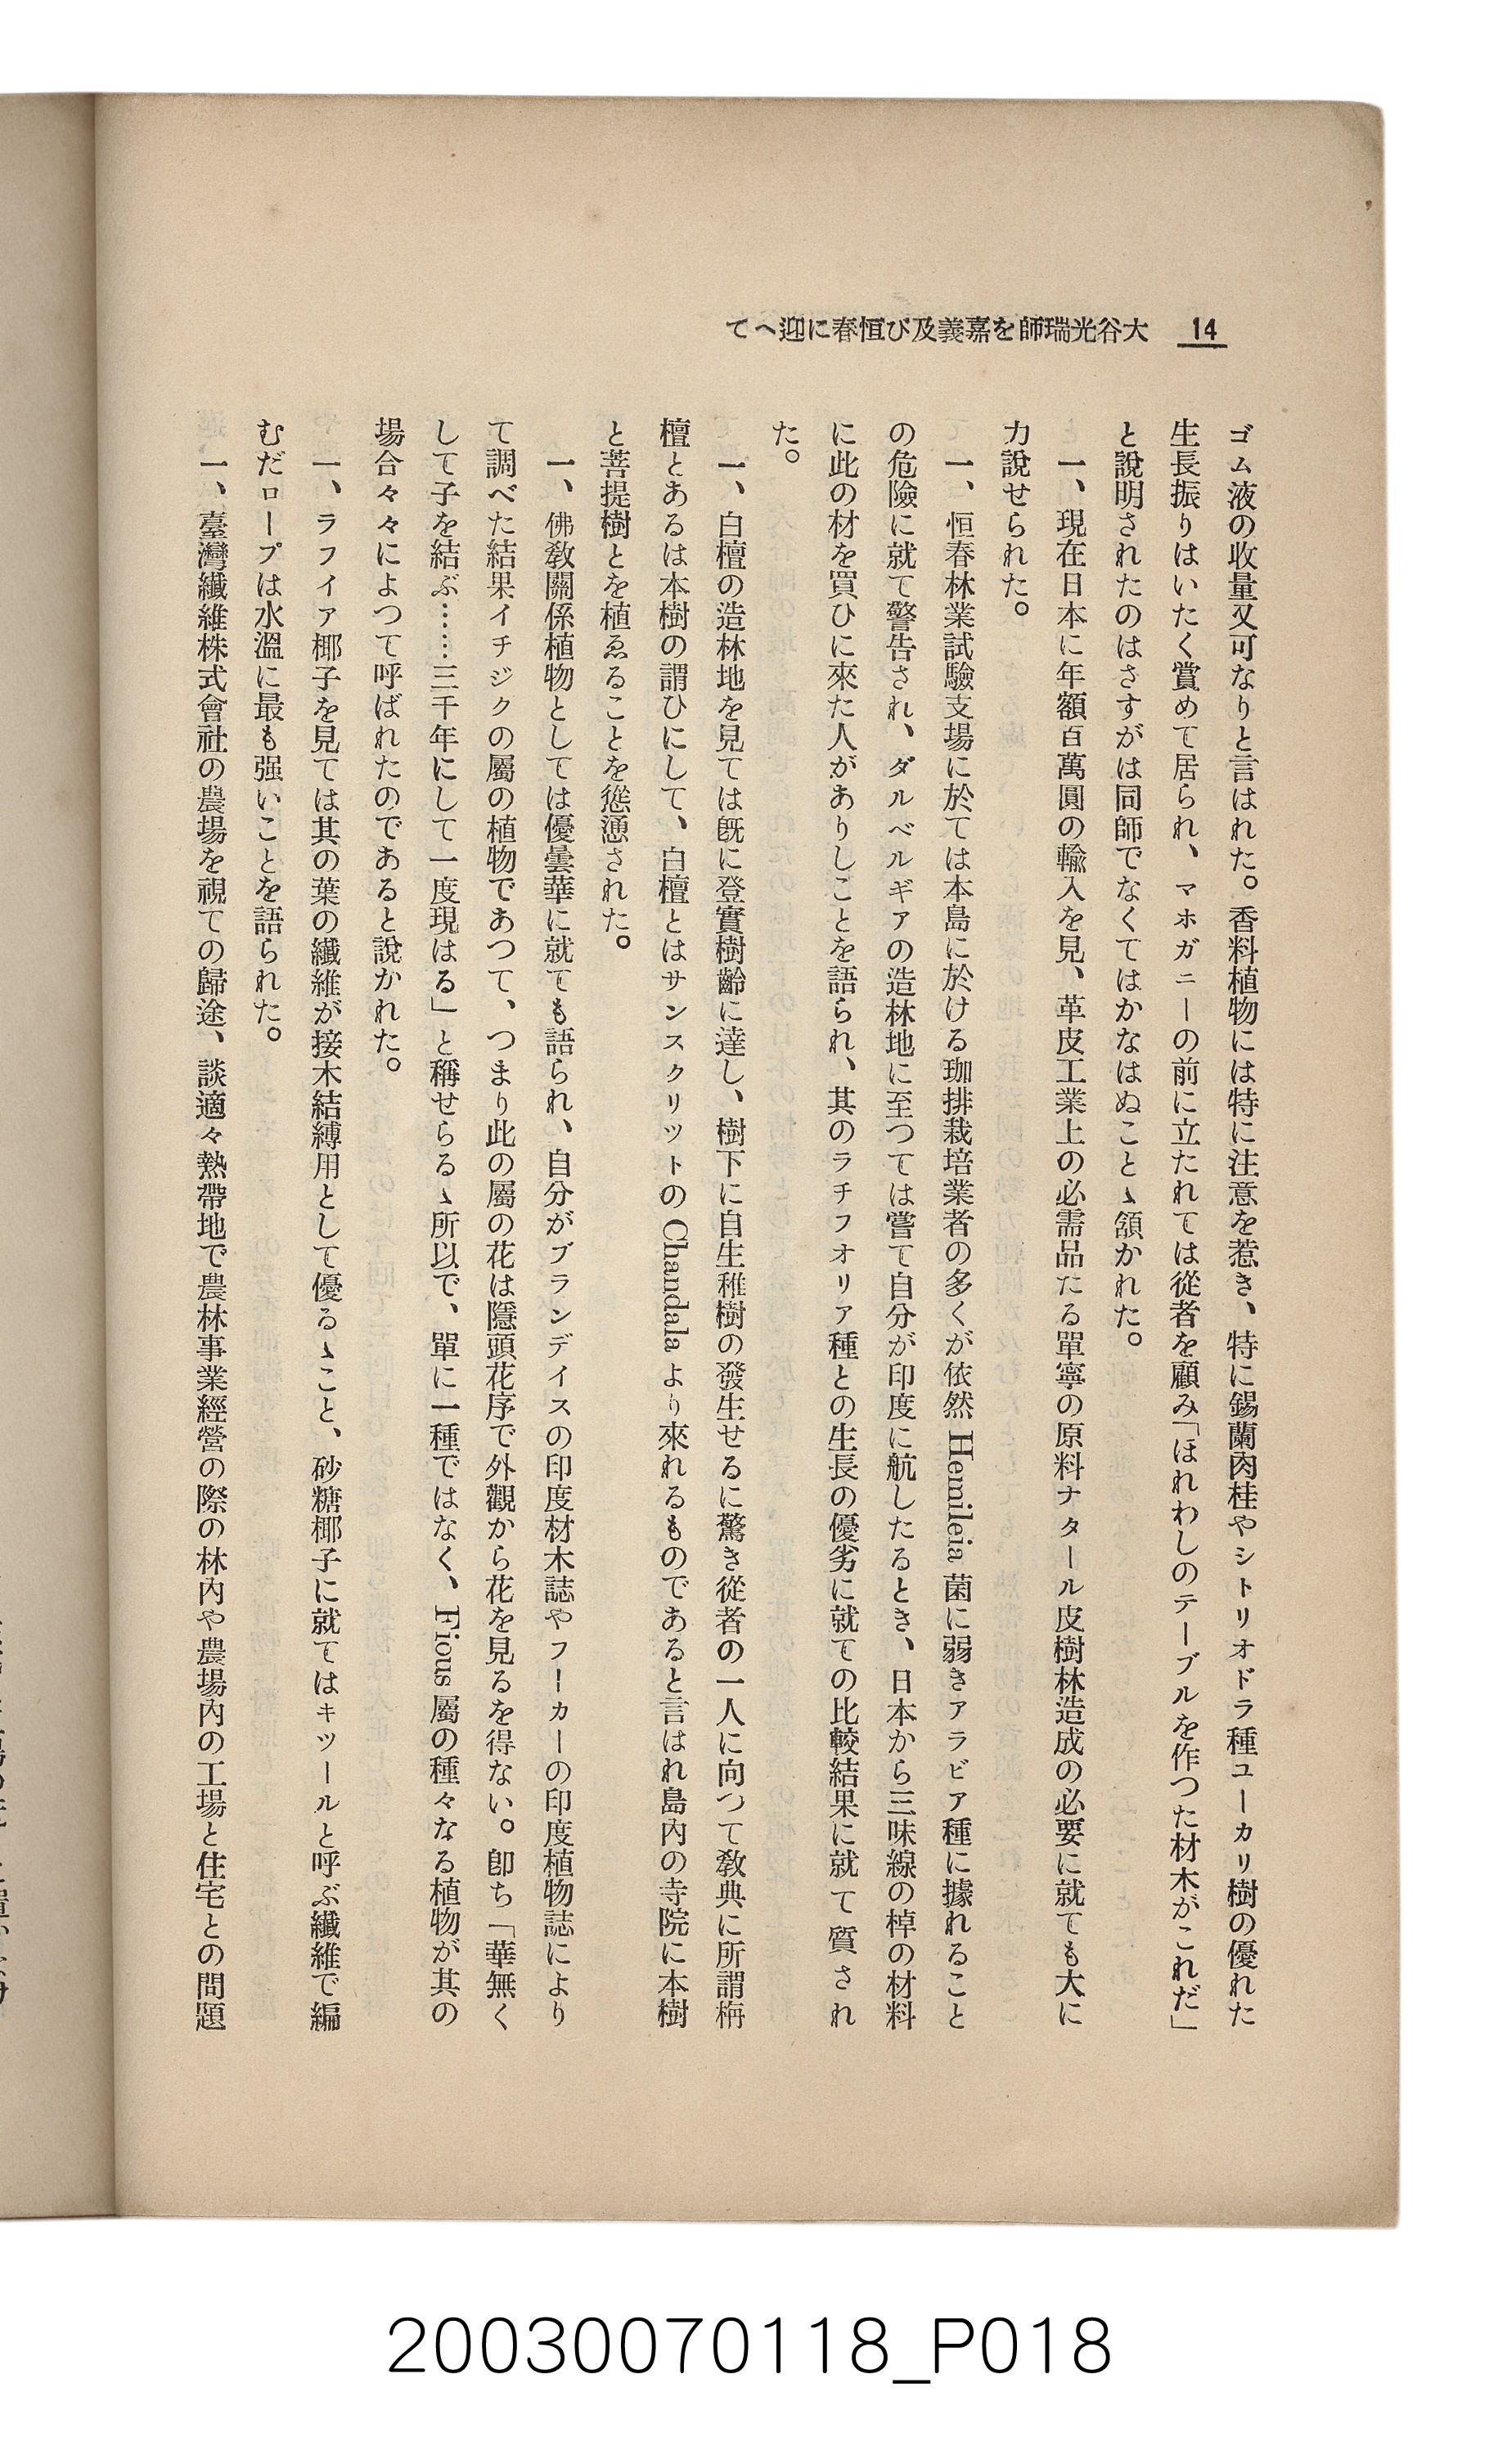 14 大谷光瑞師を嘉義及び恒春に迎へて
ゴム液の收量又可なりと言はれた。香料植物には特に注意を惹き、特に錫蘭肉桂やシトリオドラ種ユーカリ樹の優れた
生長振りはいたく賞めて居られ、マホガニーの前に立たれては從者を顧み「ほれわしのテーブルを作つた材木がこれだ」
と說明されたのはさすがは同師でなくてはかなはぬことゝ頷かれた。
一、現在日本に年額百萬圓の輸入を見、革皮工業上の必需品たる單寧の原料ナタール皮樹林造成の必要に就ても大に
力說せられた。
一、恒春林業試驗支場に於ては本島に於ける珈琲栽培業者の多くが依然 Hemileia 菌に弱きアラビア種に據れること
の危險に就て警告され、ダルベルギアの造林地に至つては嘗て自分が印度に航したるとき、日本から三味線の棹の材料
に此の材を買ひに來た人がありしことを語られ、其のラチフオリア種との生長の優劣に就ての比較結果に就て質され
た。
一、白檀の造林地を見ては既に登實樹齡に達し、樹下に自生稚樹の發生せるに驚き從者の一人に向つて敎典に所謂栴
檀とあるは本樹の謂ひにして、白檀とはサンスクリツトの Chandala より來れるものであると言はれ島內の寺院に本樹
と菩提樹とを植ゑることを慫慂された。
一、佛敎關係植物としては優曇華に就ても語られ、自分がブランデイスの印度材木誌やフーカーの印度植物誌により
て調べた結果イチジクの屬の植物であつて、つまり此の屬の花は隱頭花序で外觀から花を見るを得ない。卽ち「華無く
して子を結ぶ……三千年にして一度現はる」と稱せらるゝ所以で、單に一種ではなく、Fious 屬の種々なる植物が其の
場合々々によつて呼ばれたのであると說かれた。
一、ラフイア椰子を見ては其の葉の纖維が接木結縛用として優るゝこと、砂糖椰子に就てはキツールと呼ぶ纖維で編
むだロープは水溫に最も强いことを語られた。
一、臺灣纖維株式會社の農場を視ての歸途、談適々熱帶地で農林事業經營の際の林內や農場內の工場と住宅との問題
20030070118_P018